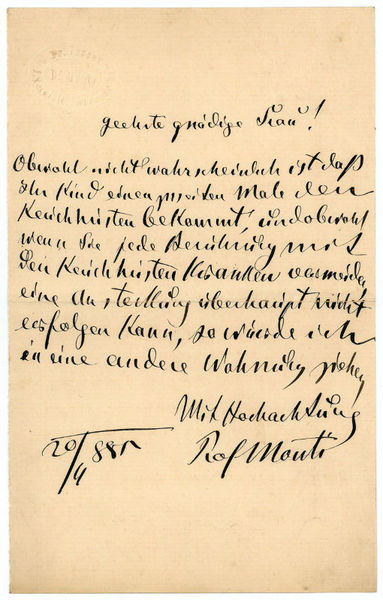 geehrte gnädige Frau!
Obwohl nicht wahrscheinlich ist daß
Ihr Kind einen zweiten Male den
Keuchhusten bekommt, und obwohl
wenn Sie jede Berührung mit
den Keuchhusten Kranken vermeiden,
eine Ansteckung überhaupt nicht
erfolgen kann, so würde ich
in eine andere Wohnung ziehen,
Mit Hochachtung
Prof Monti
20/4 881